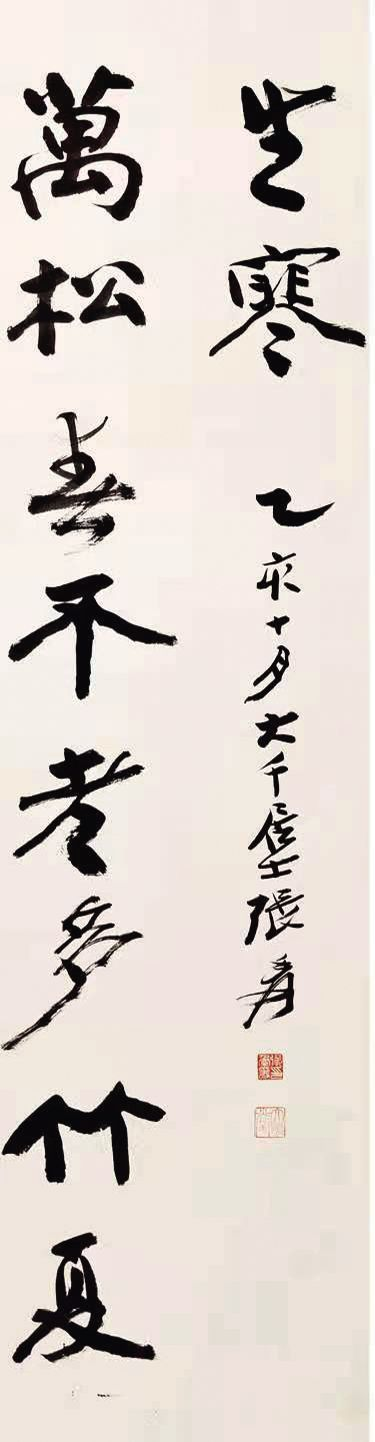 萬松春不老多竹夏
生寒
乙亥十月大千居士張爰